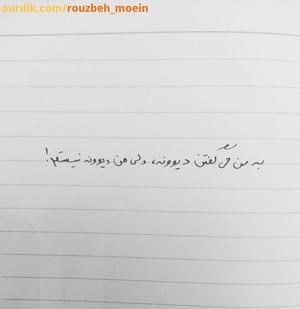 ourdik.com/rouzbeh_moein
به من می گفتن دیوونه، ولی من دیوونه نیستم!